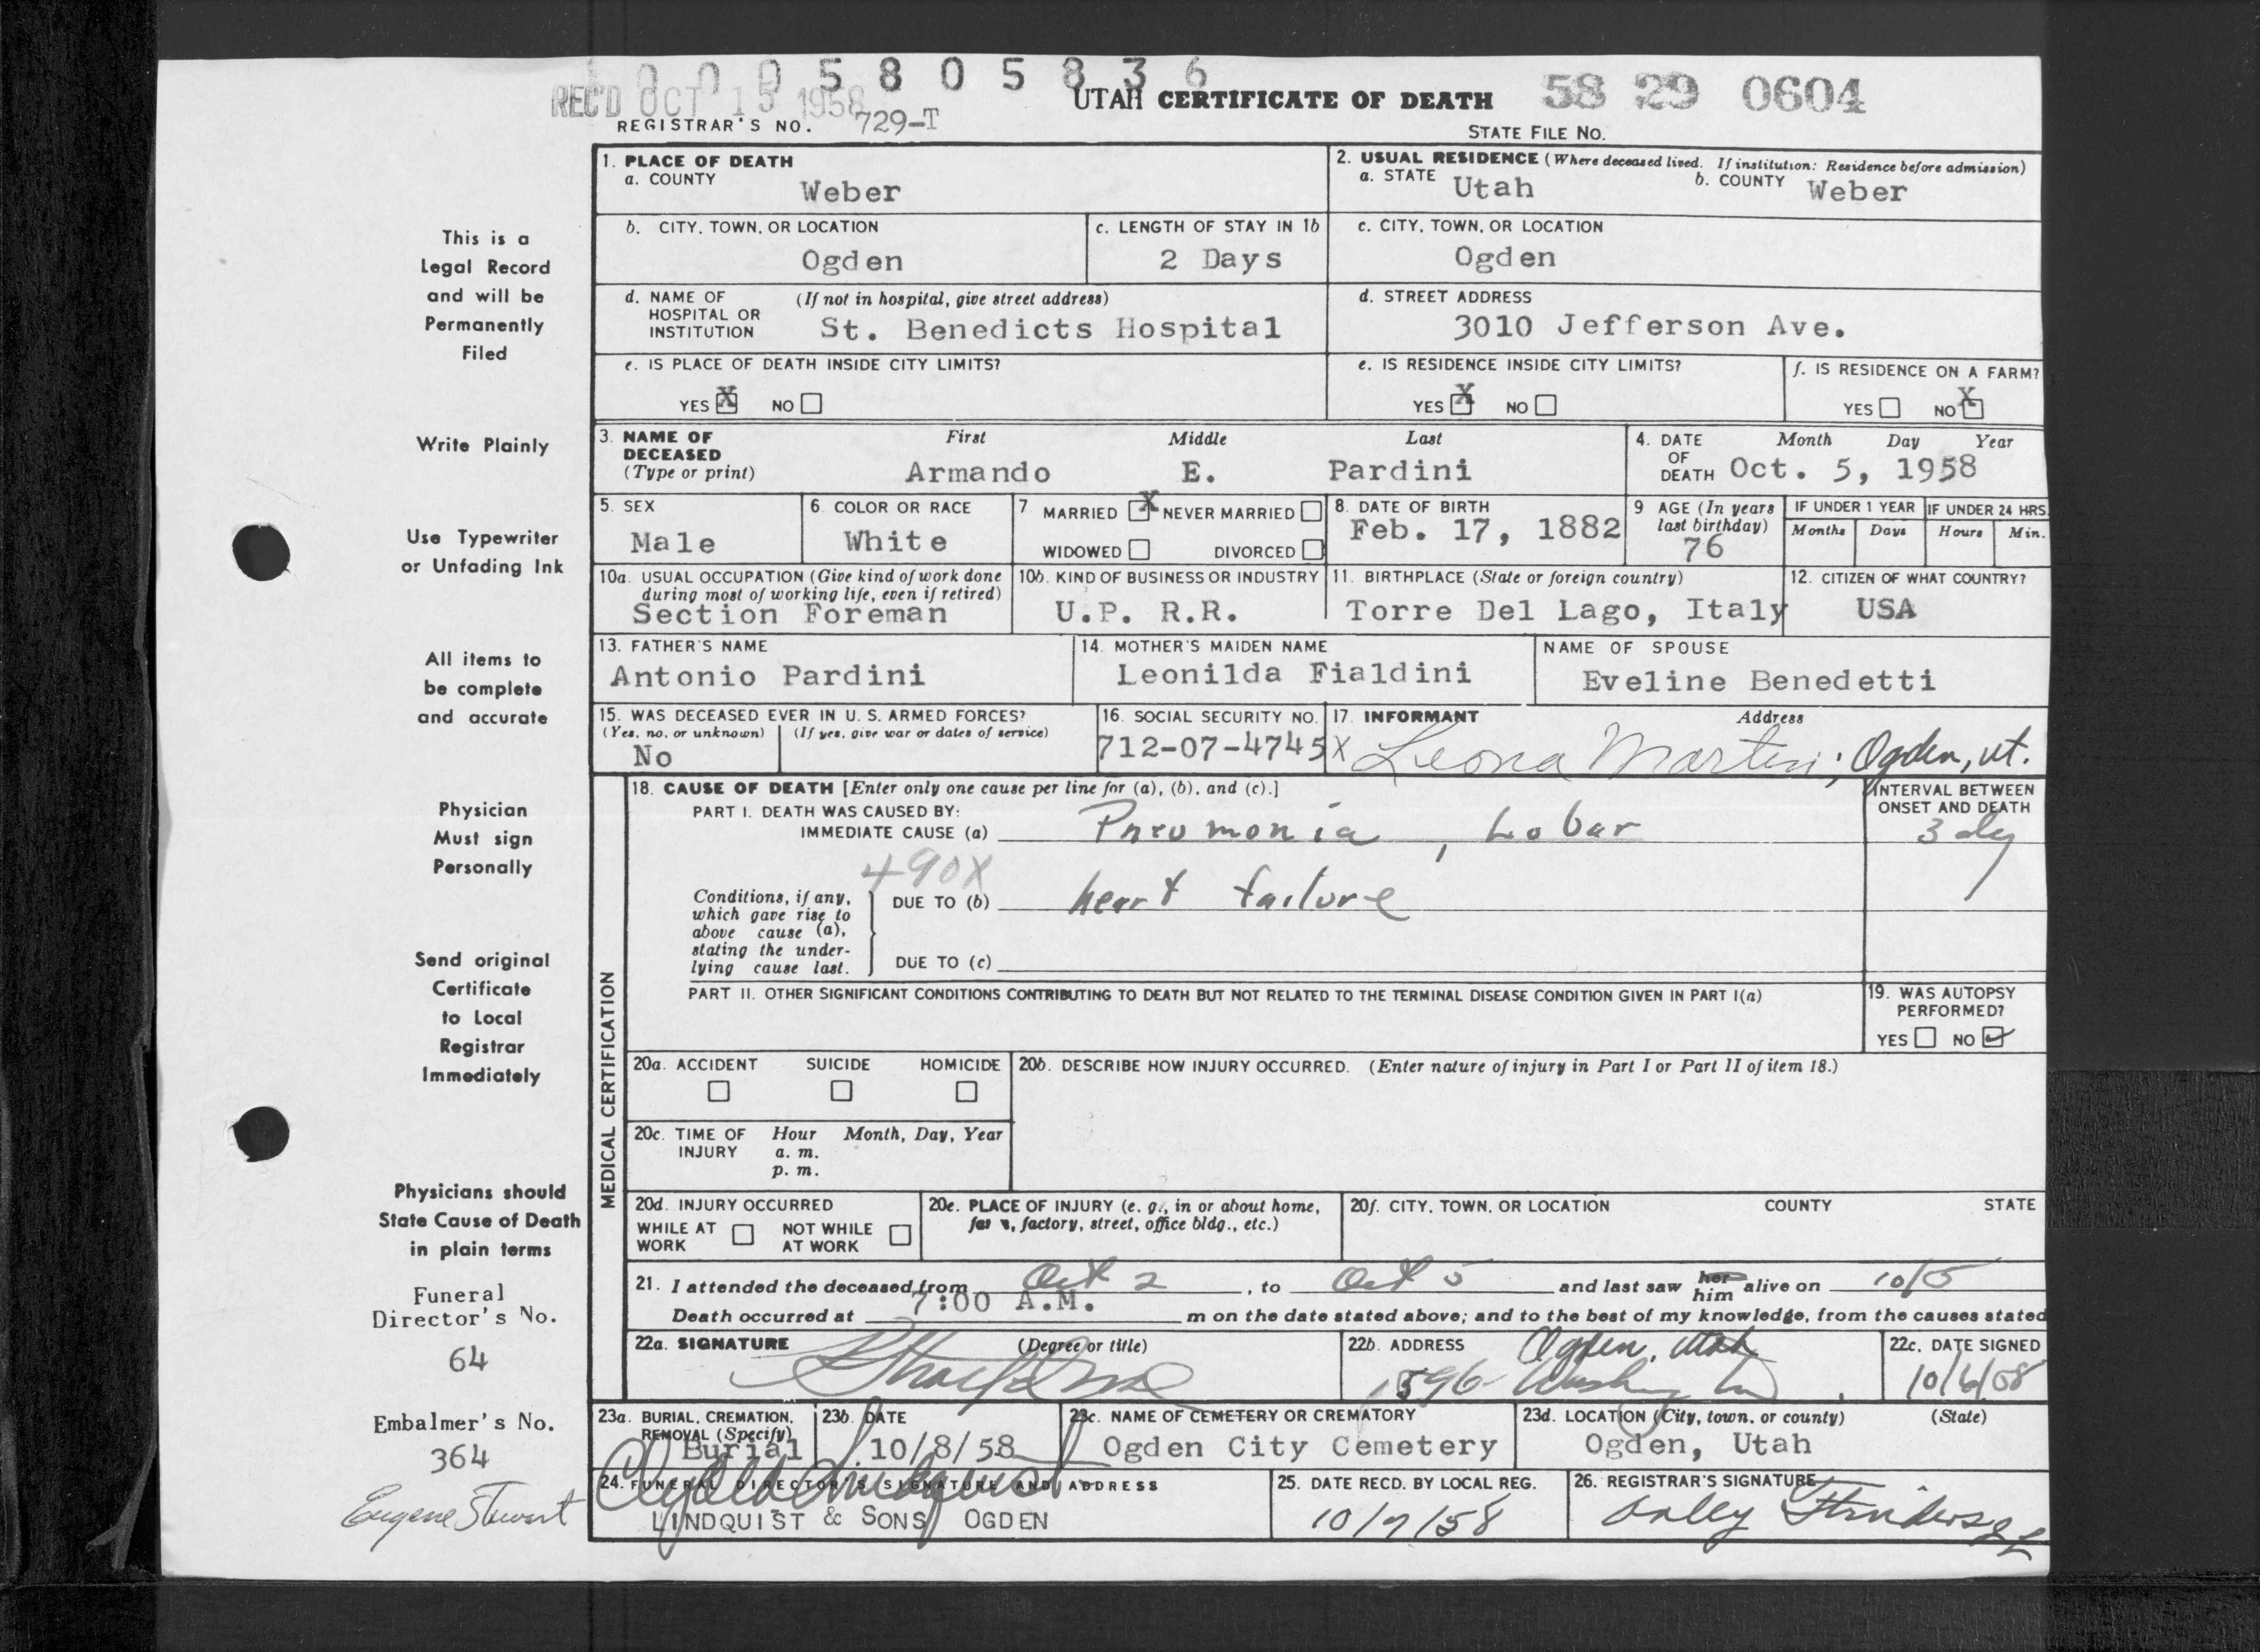 0 0 0 5 8 0 5 8 3 6
REC'D OCT 15 1958
UTAH CERTIFICATE OF DEATH 58 29 0604
REGISTRAR'S NO. 729-T
STATE FILE NO.
1. PLACE OF DEATH
a. COUNTY Weber
2. USUAL RESIDENCE (Where deceased lived. If institution: Residence before admission)
a. STATE Utah b. COUNTY Weber
b. CITY, TOWN, OR LOCATION
Ogden
c. LENGTH OF STAY IN 1b
2 Days
c. CITY, TOWN, OR LOCATION
Ogden
d. NAME OF HOSPITAL OR INSTITUTION (If not in hospital, give street address)
St. Benedicts Hospital
d. STREET ADDRESS
3010 Jefferson Ave.
e. IS PLACE OF DEATH INSIDE CITY LIMITS?
YES X NO
e. IS RESIDENCE INSIDE CITY LIMITS?
YES X NO
f. IS RESIDENCE ON A FARM?
YES NO X
3. NAME OF DECEASED (Type or print)
First Middle Last
Armando E. Pardini
4. DATE OF DEATH
Month Day Year
Oct. 5, 1958
5. SEX
Male
6. COLOR OR RACE
White
7. MARRIED X NEVER MARRIED
WIDOWED DIVORCED
8. DATE OF BIRTH
Feb. 17, 1882
9 AGE (In years last birthday)
76
IF UNDER 1 YEAR
Months Days
IF UNDER 24 HRS.
Hours Min.
10a. USUAL OCCUPATION (Give kind of work done during most of working life, even if retired)
Section Foreman
10b. KIND OF BUSINESS OR INDUSTRY
U.P. R.R.
11. BIRTHPLACE (State or foreign country)
Torre Del Lago, Italy
12. CITIZEN OF WHAT COUNTRY?
USA
13. FATHER'S NAME
Antonio Pardini
14. MOTHER'S MAIDEN NAME
Leonilda Fialdini
NAME OF SPOUSE
Eveline Benedetti
15. WAS DECEASED EVER IN U. S. ARMED FORCES?
(Yes, no, or unknown) (If yes, give war or dates of service)
No
16. SOCIAL SECURITY NO.
712-07-4745
17. INFORMANT Address
X Leona Martini; Ogden, Ut.
MEDICAL CERTIFICATION
18. CAUSE OF DEATH [Enter only one cause per line for (a), (b), and (c).]
PART I. DEATH WAS CAUSED BY:
IMMEDIATE CAUSE (a) Pneumonia, Lobar
INTERVAL BETWEEN ONSET AND DEATH
3 dy
490X
Conditions, if any, which gave rise to above cause (a), stating the underlying cause last.
DUE TO (b) heart failure
DUE TO (c)
PART II. OTHER SIGNIFICANT CONDITIONS CONTRIBUTING TO DEATH BUT NOT RELATED TO THE TERMINAL DISEASE CONDITION GIVEN IN PART I(a)
19. WAS AUTOPSY PERFORMED?
YES NO ✓
20a. ACCIDENT SUICIDE HOMICIDE
20b. DESCRIBE HOW INJURY OCCURRED. (Enter nature of injury in Part I or Part II of item 18.)
20c. TIME OF INJURY Hour Month, Day, Year
a. m.
p. m.
20d. INJURY OCCURRED
WHILE AT WORK NOT WHILE AT WORK
20e. PLACE OF INJURY (e. g., in or about home, farm, factory, street, office bldg., etc.)
20f. CITY, TOWN, OR LOCATION COUNTY STATE
21. I attended the deceased from Oct 2, to Oct 5 and last saw her him alive on 10/5
Death occurred at 7:00 A.M. m on the date stated above; and to the best of my knowledge, from the causes stated
22a. SIGNATURE (Degree or title)
22b. ADDRESS Ogden, Utah
22c. DATE SIGNED
10/6/58
23a. BURIAL, CREMATION, REMOVAL (Specify)
Burial
23b. DATE
10/8/58
23c. NAME OF CEMETERY OR CREMATORY
Ogden City Cemetery
23d. LOCATION (City, town, or county) (State)
Ogden, Utah
24. FUNERAL DIRECTOR'S SIGNATURE AND ADDRESS
LINDQUIST & SONS OGDEN
25. DATE RECD. BY LOCAL REG.
10/7/58
26. REGISTRAR'S SIGNATURE
This is a
Legal Record
and will be
Permanently
Filed
Write Plainly
Use Typewriter
or Unfading Ink
All items to
be complete
and accurate
Physician
Must sign
Personally
Send original
Certificate
to Local
Registrar
Immediately
Physicians should
State Cause of Death
in plain terms
Funeral
Director's No.
64
Embalmer's No.
364
Eugene Stewart